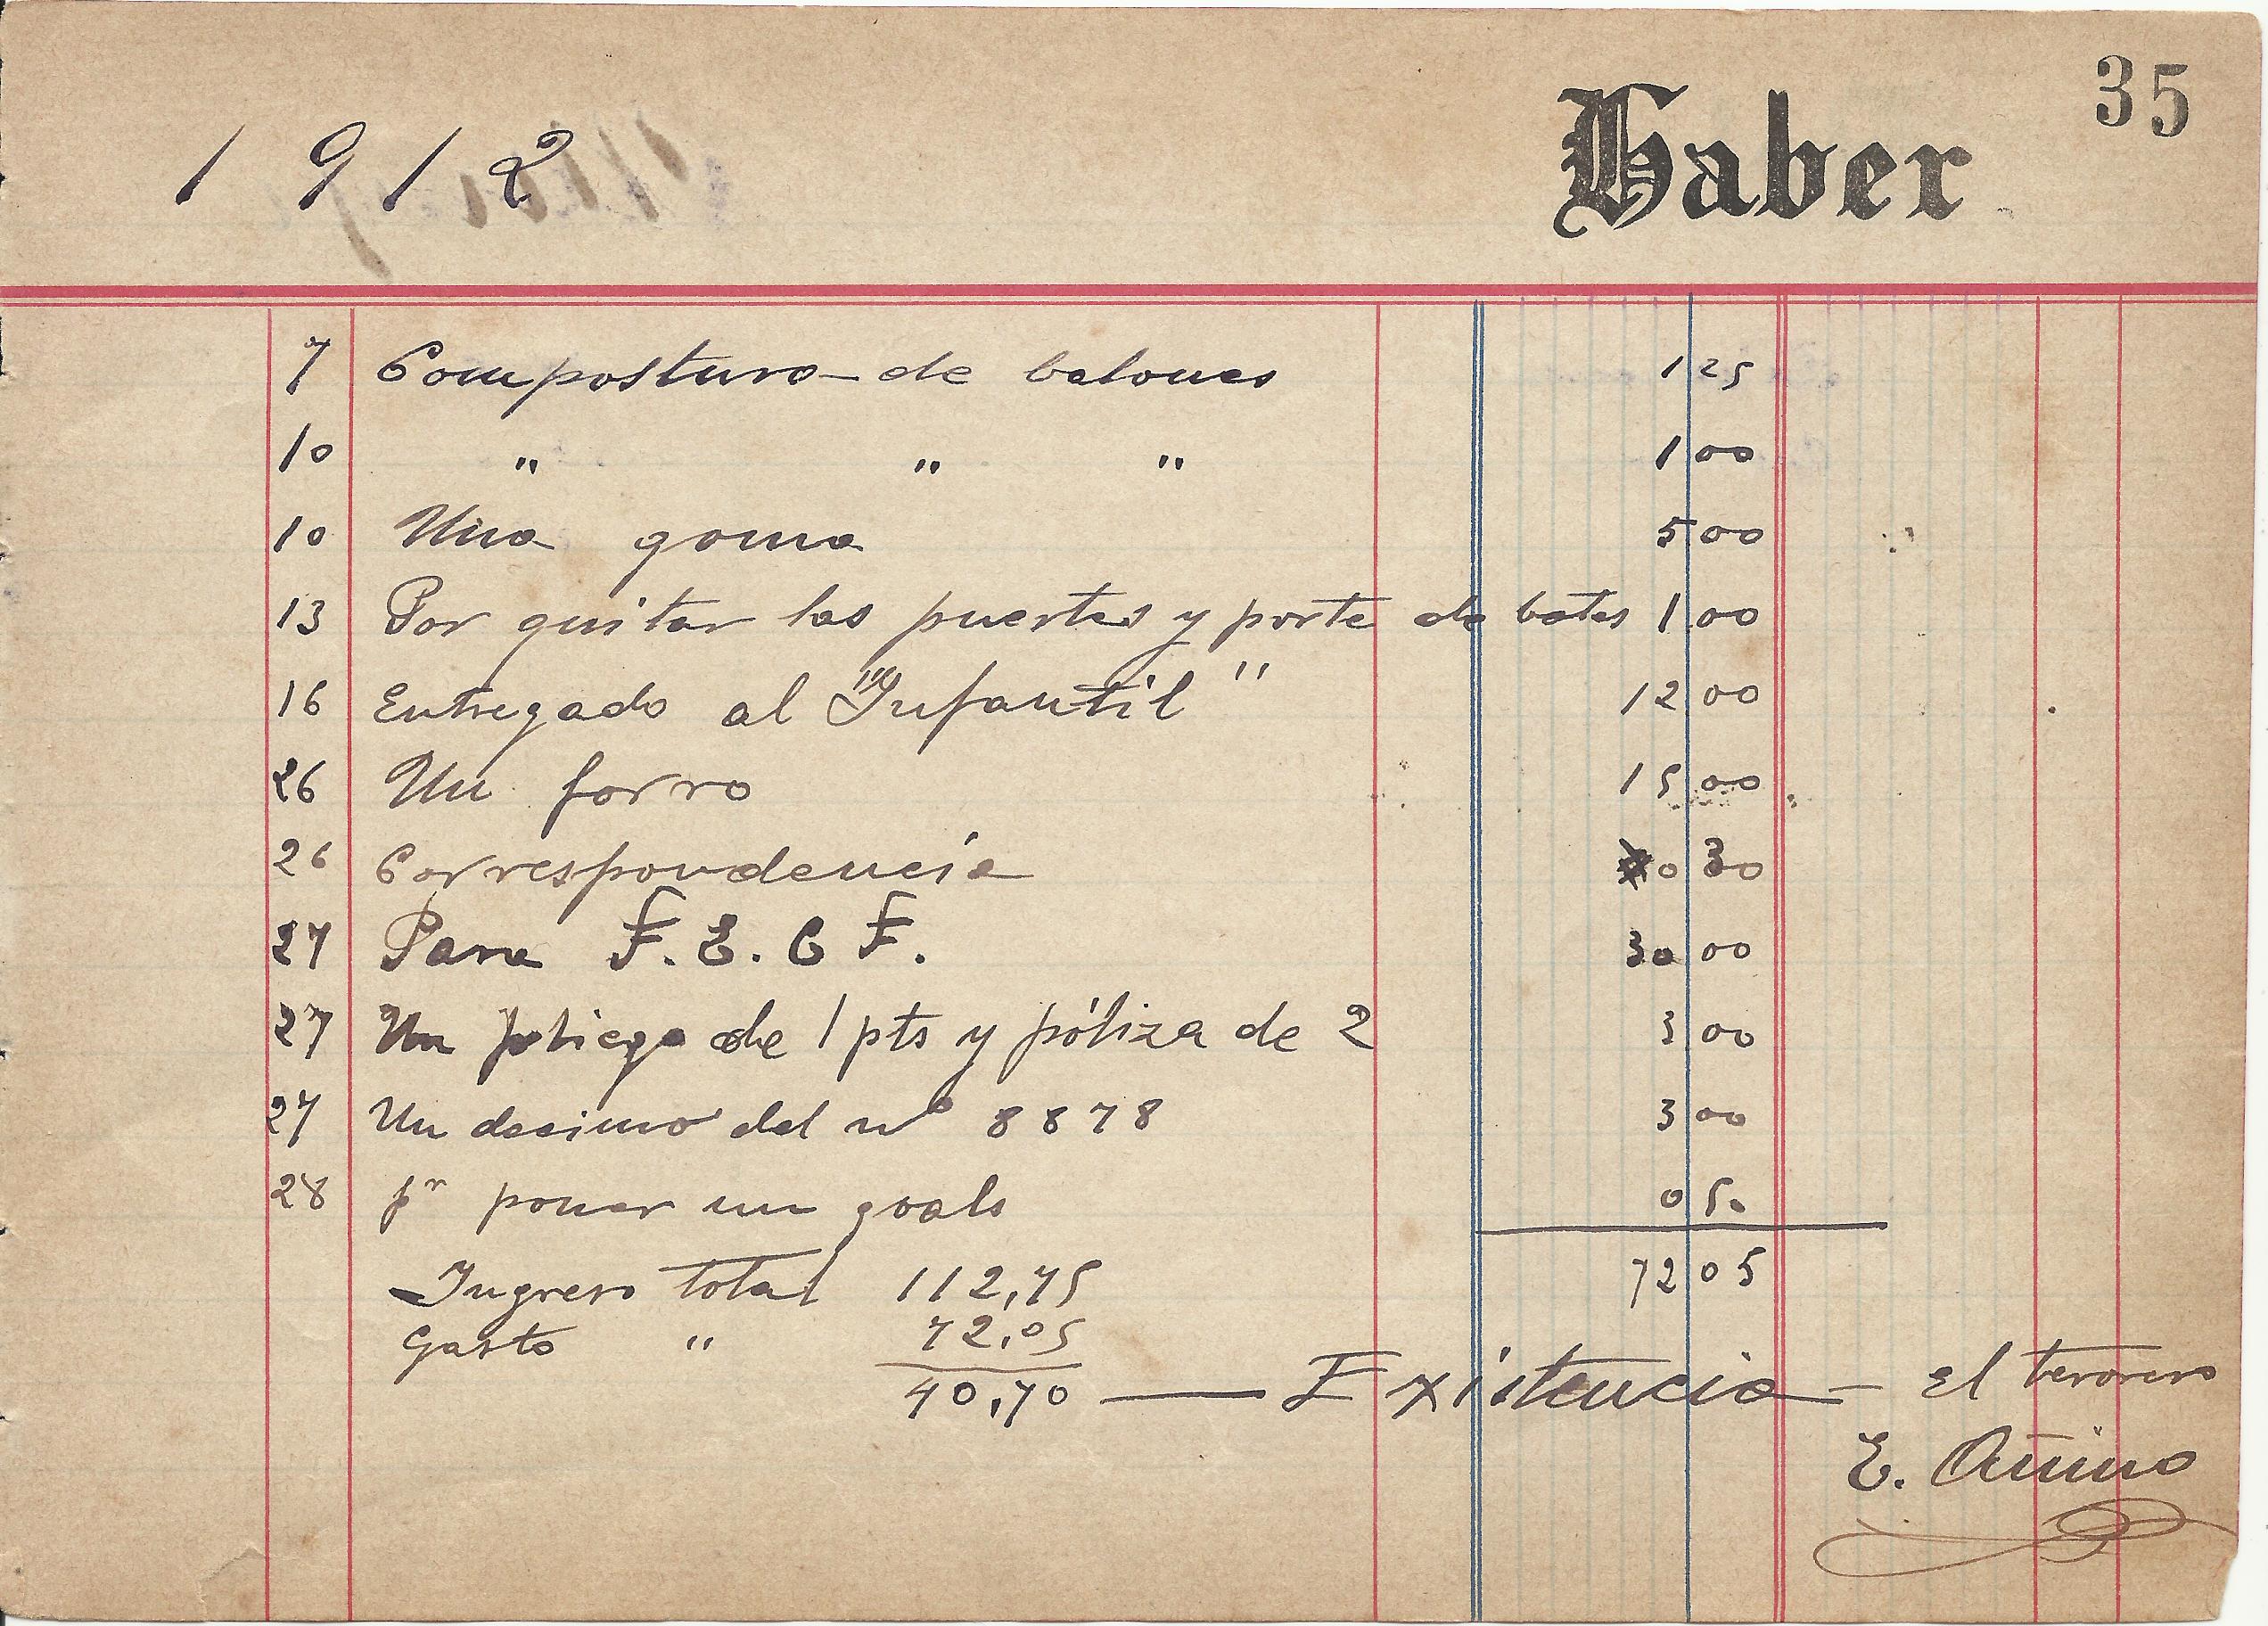 35
1912 Haber
7 Compostura de balones 1 25
10 " " " 1 00
10 Una goma 5 00
13 Por quitar las puertas y porte de botes 1 00
16 Entregado al "Infantil" 12 00
26 Un forro 15 00
26 Correspondencia 0 30
27 Para F. E. C F. 30 00
27 Un pliego de 1 pts y póliza de 2 3 00
27 Un decimo del nº 8878 3 00
28 pr poner un goals 0 50
72 05
Ingreso total 112,75
Gasto " 72,05
40,70 — Existencia — el tesorero
E.